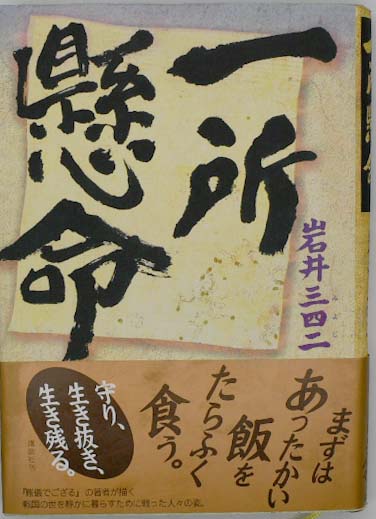 一所
懸命
岩井三四二
まずは
あったかい
飯を
たらふく
食う。
守り、
生き抜き、
生き残る。
講談社刊
『難儀でござる』の著者が描く
戦国の世を静かに暮らすために戦った人々の姿。